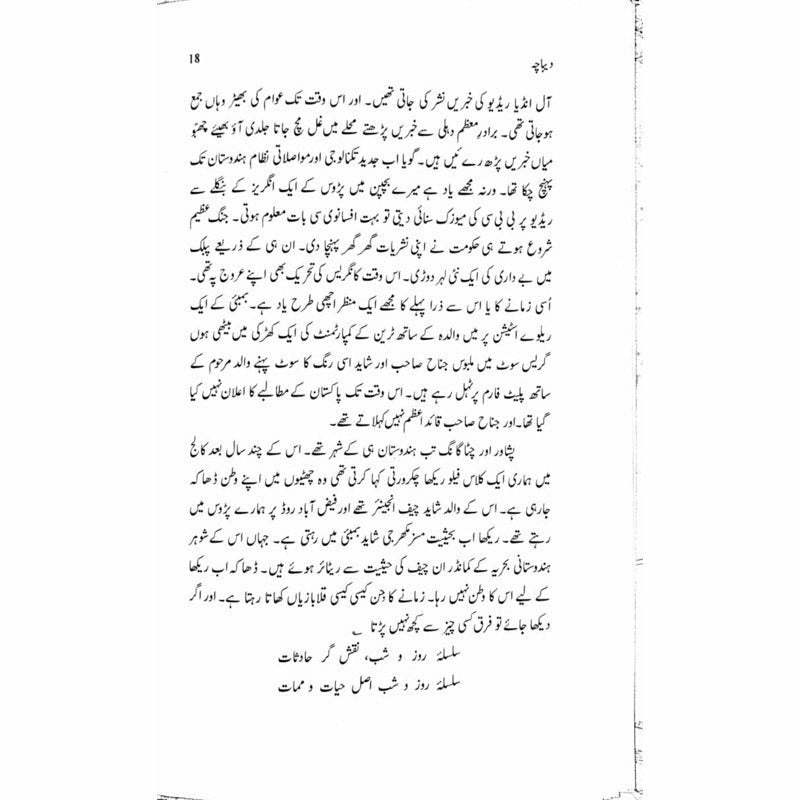 دیباچہ 18
آل انڈیا ریڈیو کی خبریں نشر کی جاتی تھیں۔ اور اس وقت تک عوام کی بھیڑ وہاں جمع
ہوجاتی تھی۔ برادرِ معظم دہلی سے خبریں پڑھتے محلے میں غل مچ جاتا جلدی آؤ بھیئے چھبّو
میاں خبریں پڑھ رے ئیں ہیں۔ گویا اب جدید تکنالوجی اور مواصلاتی نظام ہندوستان تک
پہنچ چکا تھا۔ ورنہ مجھے یاد ہے میرے بچپن میں پڑوس کے ایک انگریز کے بنگلے سے
ریڈیو پر بی بی سی کی میوزک سنائی دیتی تو بہت افسانوی سی بات معلوم ہوتی۔ جنگ عظیم
شروع ہوتے ہی حکومت نے اپنی نشریات گھر گھر پہنچا دی۔ ان ہی کے ذریعے پبلک
میں بے داری کی ایک نئی لہر دوڑی۔ اس وقت کانگریس کی تحریک بھی اپنے عروج پہ تھی۔
اُسی زمانے کا یا اس سے ذرا پہلے کا مجھے ایک منظر اچھی طرح یاد ہے۔ بمبئی کے ایک
ریلوے اسٹیشن پر میں والدہ کے ساتھ ٹرین کے کمپارٹمنٹ کی ایک کھڑکی میں بیٹھی ہوں
گریس سوٹ میں ملبوس جناح صاحب اور شاید اسی رنگ کا سوٹ پہنے والد مرحوم کے
ساتھ پلیٹ فارم پر ٹہل رہے ہیں۔ اس وقت تک پاکستان کے مطالبے کا اعلان نہیں کیا
گیا تھا۔ اور جناح صاحب قائد اعظم نہیں کہلاتے تھے۔
پشاور اور چٹاگانگ تب ہندوستان ہی کے شہر تھے۔ اس کے چند سال بعد کالج
میں ہماری ایک کلاس فیلو ریکھا چکرورتی کہا کرتی تھی وہ چھٹیوں میں اپنے وطن ڈھاکہ
جارہی ہے۔ اس کے والد شاید چیف انجینئر تھے اور فیض آباد روڈ پر ہمارے پڑوس میں
رہتے تھے۔ ریکھا اب بحیثیت مسز مکھرجی شاید بمبئی میں رہتی ہے۔ جہاں اس کے شوہر
ہندوستانی بحریہ کے کمانڈر ان چیف کی حیثیت سے ریٹائر ہوئے ہیں۔ ڈھاکہ اب ریکھا
کے لیے اس کا وطن نہیں رہا۔ زمانے کا جِن کیسی کیسی قلابازیاں کھاتا رہتا ہے۔ اور اگر
دیکھا جائے تو فرق کسی چیز سے کچھ نہیں پڑتا ؎
سلسلۂ روز و شب، نقش گر حادثات
سلسلۂ روز و شب اصل حیات و ممات